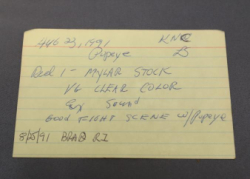 AUG 23, 1991 KNC
Popeye B
Reel 1 - MYLAR STOCK
VG CLEAR COLOR
Sound
GOOD FIGHT SCENE w/Popeye
8/25/91 BRAD RI